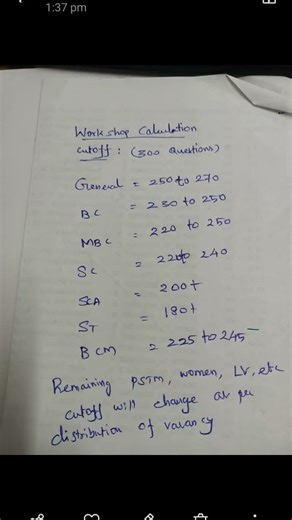 1:37 pm
Workshop Calculation
cutoff : (300 Questions)
General = 250 to 270
BC = 230 to 250
MBC = 220 to 250
SC = 220 to 240
SCA = 200+
ST = 180+
BCM = 225 to 245
Remaining PSTM, women, LV, etc
cutoff will change as per
distribution of vacancy